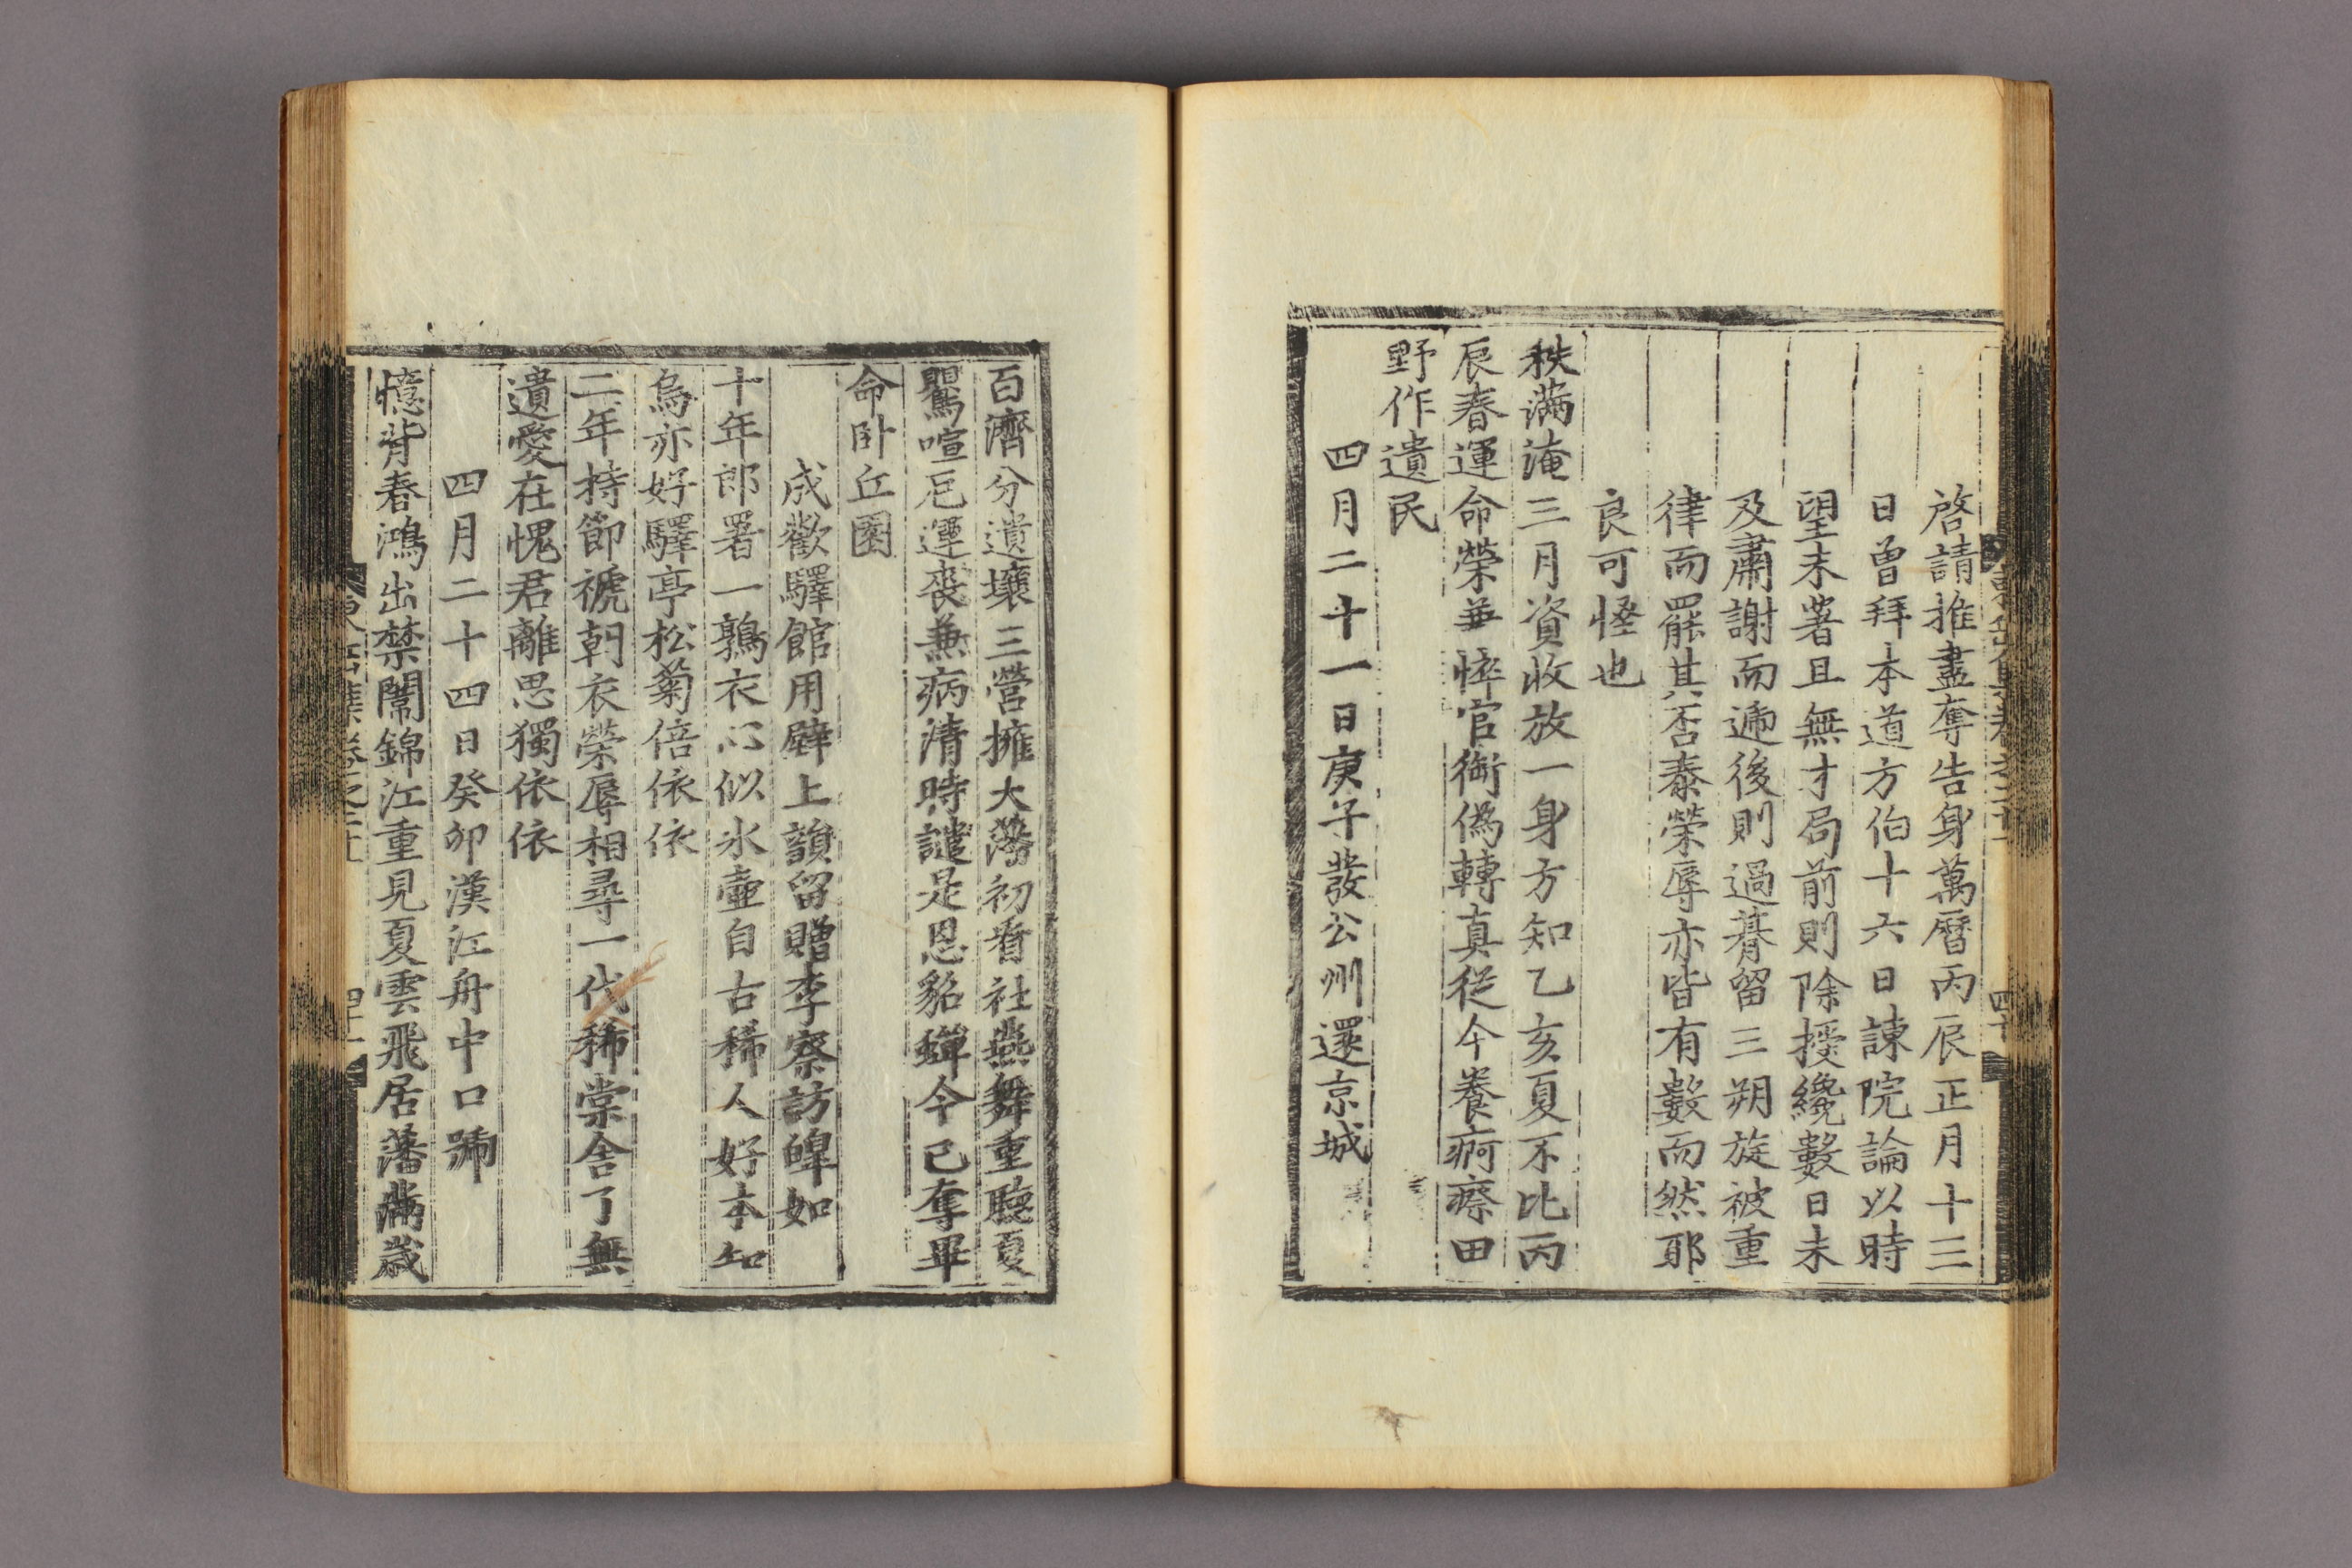 啓請推盡奪告身萬曆丙辰正月十三
日曾拜本道方伯十六日諫院論以時
望未著且無才局前則除授纔數日未
及肅謝而遞後則過朞留三朔旋被重
律而罷其否泰榮辱亦皆有數而然耶
良可怪也
秩滿淹三月資收放一身方知乙亥夏不比丙
辰春運命榮兼悴官銜偽轉真從今養痾瘵田
野作遺民
四月二十一日庚子發公州還京城
百濟分遺壤三營擁大藩初看社燕舞重聽夏
鸎喧厄運喪兼病清時譴是恩貂蟬今已奪畢
命卧丘園
成歡驛館用壁上韻留贈李察訪皡如
十年郎署一鶉衣心似氷壺自古稀人好本知
烏亦好驛亭松菊倍依依
二年持節褫朝衣榮辱相尋一代稀棠舎了無
遺愛在愧君離思獨依依
四月二十四日癸卯漢江舟中口號
憶背春鴻出禁闈錦江重見夏雲飛居藩滿歲